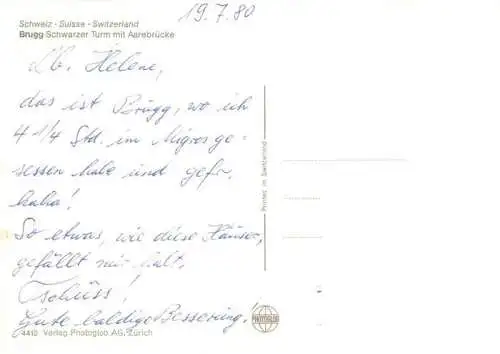 19.7.80
Schweiz - Suisse - Switzerland
Brugg Schwarzer Turm mit Aarebrücke
Lb. Helene,
das ist Brugg, wo ich
4 1/4 Std. im Migros ge-
sessen habe und gefr.
haha!
So etwas, wie diese Häuser,
gefällt mir halt.
Tschüss!
Gute baldige Besserung!
4412 Verlag Photoglob AG, Zürich
Printed in Switzerland
PHOTOGLOB